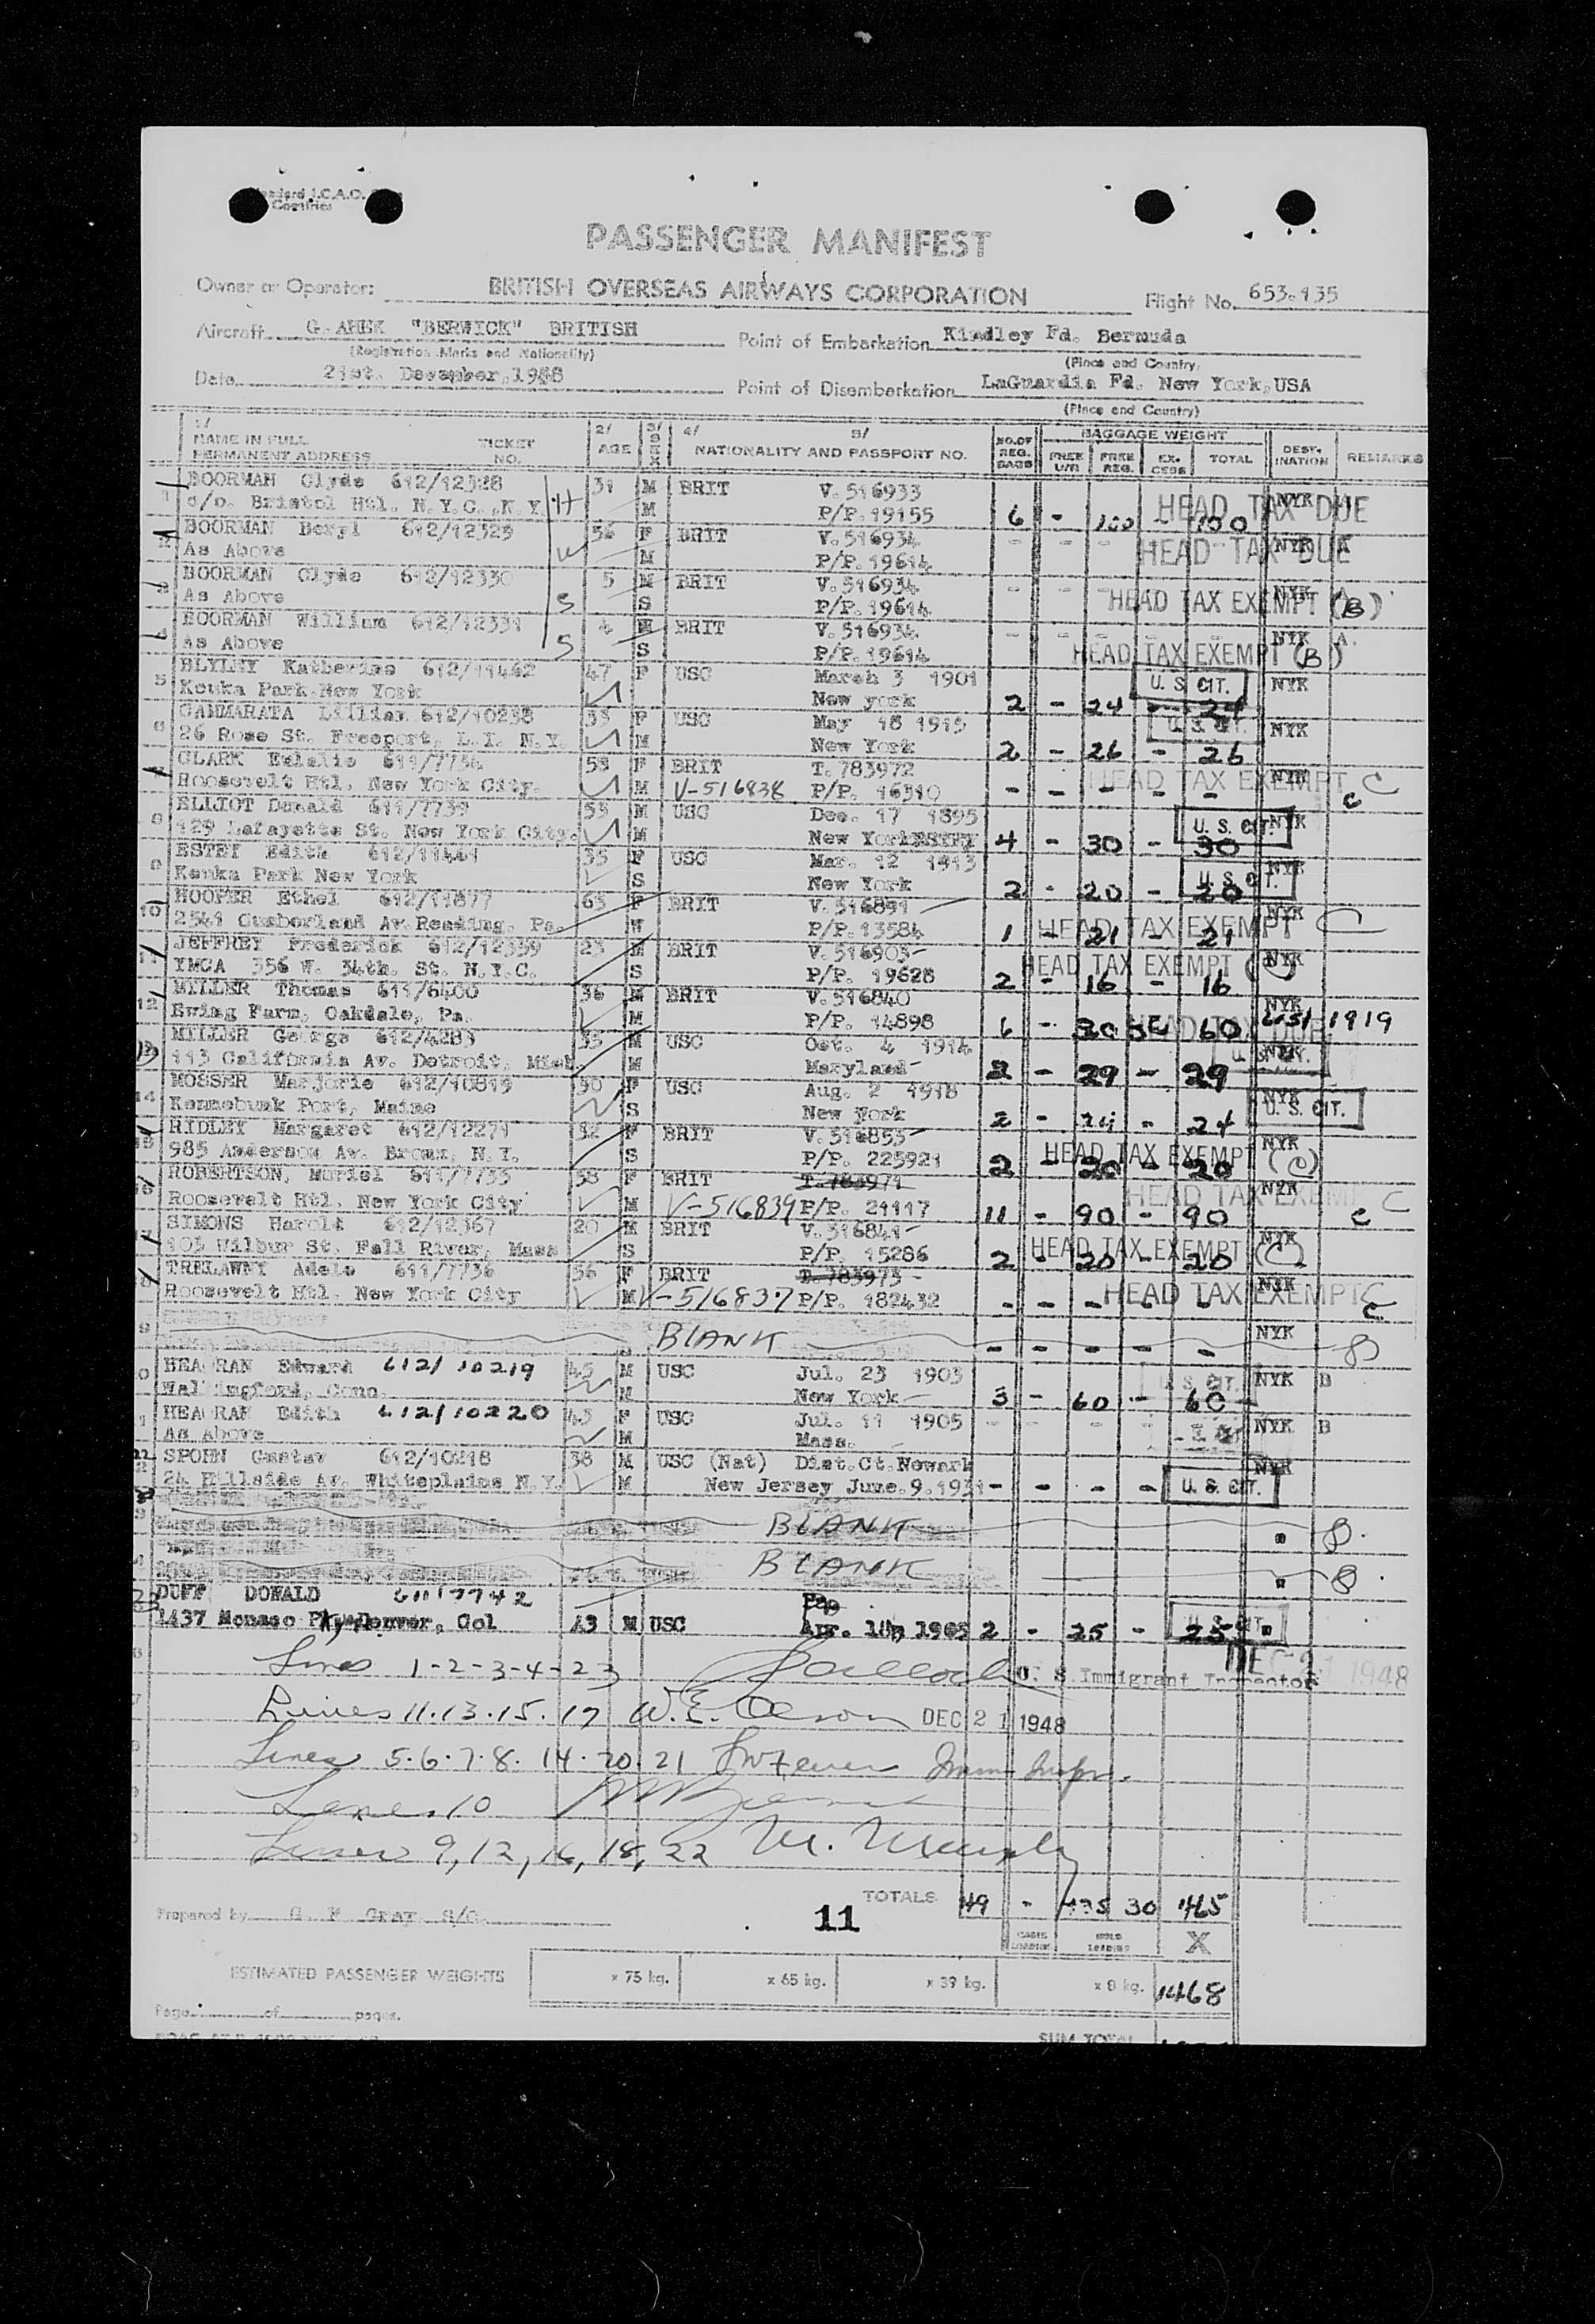 PASSENGER MANIFEST
Owner or Operator: BRITISH OVERSEAS AIRWAYS CORPORATION Flight No. 653.135
Aircraft G. AHEK "BERWICK" BRITISH Point of Embarkation Kindley Fd. Bermuda
(Registration Marks and Nationality) (Place and Country)
Date 21st. December, 1948 Point of Disembarkation LaGuardia Fd. New York, USA
(Place and Country)
1/ NAME IN FULL TICKET 2/ 3/ 4/ 5/ NO. OF BAGGAGE WEIGHT DEST- REMARKS
PERMANENT ADDRESS NO. AGE SEX NATIONALITY AND PASSPORT NO. REG. BAGS FREE REG. EX- CESS TOTAL INATION
BOORMAN Clyde 612/12328 31 M BRIT V. 516933 HEAD TAX DUE NYK
c/o. Bristol Htl. N.Y.C., N.Y. H M P/P. 19155 6 - 100 - 100
BOORMAN Beryl 612/12329 56 F BRIT V. 516934 HEAD TAX DUE NYK A
As Above W M P/P. 19614
BOORMAN Clyde 612/12330 5 M BRIT V. 516934 NYK
As Above S S P/P. 19614 HEAD TAX EXEMPT (B)
BOORMAN William 612/12331 4 M BRIT V. 516934 NYK A
As Above S S P/P. 19614 HEAD TAX EXEMPT (B)
BLYLEY Katherine 612/11462 47 F USC March 3 1901 U. S. CIT. NYK
Keuka Park New York New york 2 - 24 - 24
GAMMARATA Lillian 612/10238 33 F USC May 18 1915 U. S. CIT. NYK
26 Rose St. Freeport, L.I. N.Y. M New York 2 - 26 - 26
CLARK Eulalie 611/7734 59 F BRIT T. 783972 HEAD TAX EXEMPT C NYK
Roosevelt Htl. New York City. M V-516838 P/P. 16310 - - - - - C
ELLIOT Donald 611/7739 53 M USC Dec. 17 1895 U. S. CIT. NYK
129 Lafayette St. New York City. M New York 4 - 30 - 30
ESTEY Edith 612/11461 35 F USC Mar. 12 1913 U. S. CIT. NYK
Keuka Park New York S New York 2 - 20 - 20
10 HOOPER Ethel 612/11877 63 F BRIT V. 516891 NYK
2541 Cumberland Av. Reading, Pa. W P/P. 13584 1 - 21 - 21 HEAD TAX EXEMPT C
11 JEFFREY Frederick 612/12359 23 M BRIT V. 516903 NYK
YMCA 356 W. 34th. St. N.Y.C. S P/P. 19628 2 - 16 - 16 HEAD TAX EXEMPT (C)
12 MILLER Thomas 611/6400 36 M BRIT V. 516840 NYK
Ewing Farm, Oakdale, Pa. M P/P. 14898 6 - 30 30 60 HEAD TAX DUE 1919
13 MILLER George 612/4283 35 M USC Oct. 4 1914 U. S. CIT. NYK
113 California Av. Detroit, Mich M Maryland 2 - 29 - 29
14 MOSSER Marjorie 612/10819 30 F USC Aug. 2 1918 NYK
Kennebunk Port, Maine S New York 2 - 24 - 24 U. S. CIT.
15 RIDLEY Margaret 612/12271 32 F BRIT V. 516855 NYK
985 Anderson Av. Bronx, N.Y. S P/P. 225921 2 - 20 - 20 HEAD TAX EXEMPT (C)
16 ROBERTSON, Muriel 611/7735 58 F BRIT T. 783971 HEAD TAX EXEMPT C NYK
Roosevelt Htl. New York City M V-516839 P/P. 21117 11 - 90 - 90 C
SIMONS Harold 612/12367 20 M BRIT V. 516841 NYK
103 Wilbur St. Fall River, Mass S P/P. 15286 2 - 20 - 20 HEAD TAX EXEMPT (C)
TRELAWNY Adele 611/7736 56 F BRIT T. 783973 NYK
Roosevelt Htl. New York City M V-516837 P/P. 182432 - - - - - HEAD TAX EXEMPT C C
BLANK - - - - - NYK
HEAGRAN Edward 612/10219 45 M USC Jul. 23 1903 U. S. CIT. NYK B
Wallingford, Conn. M New York 3 - 60 - 60
HEAGRAN Edith 612/10220 43 F USC Jul. 11 1905 NYK B
As Above M Mass.
22 SPOHN Gustav 612/10218 38 M USC (Nat) Dist. Ct. Newark NYK
24 Hillside Av. Whiteplains N.Y. M New Jersey June. 9. 1931 - - - - U. S. CIT.
BLANK "
BLANK "
23 DUFF DONALD 611/7742
1437 Monaco Pkwy Denver, Col 43 M USC Apr. 18, 1905 2 - 25 - 25 U. S. CIT. "
Lines 1-2-3-4-23 U. S. Immigrant Inspector DEC 21 1948
Lines 11.13.15.17 W. E. Olson DEC 21 1948
Lines 5.6.7.8.14.20.21 Imm Inspr.
Lines 10
Lines 9, 12, 16, 18, 22 M.
TOTALS 49 - 435 30 465
Prepared by G. F. Gray. S/O. 11
X
ESTIMATED PASSENGER WEIGHTS x 75 kg. x 65 kg. x 39 kg. x 8 kg. 1468
Page of pages.
SUM TOTAL